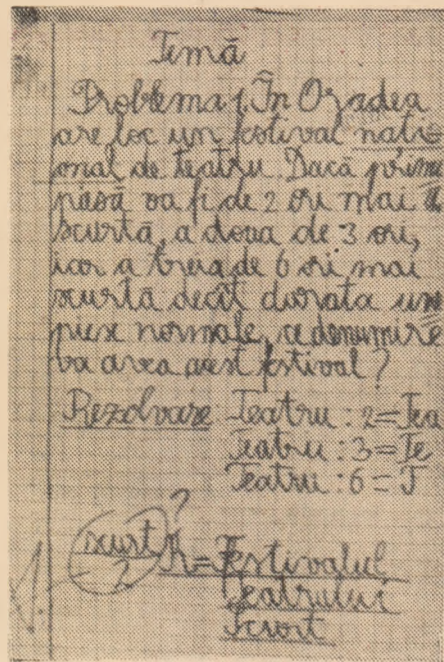 Temă
Problema 1 În Oradea
are loc un festival nați-
onal de teatru. Dacă prima
piesă va fi de 2 ori mai
scurtă, a doua de 3 ori,
iar a treia de 6 ori mai
scurtă decît durata unei
piese normale, ce denumire
va avea acest festival?
Rezolvare: Teatru : 2 = Tea
Teatru : 3 = Te
Teatru : 6 = T
scurt ?
?
R = Festivalul
Teatrului
Scurt